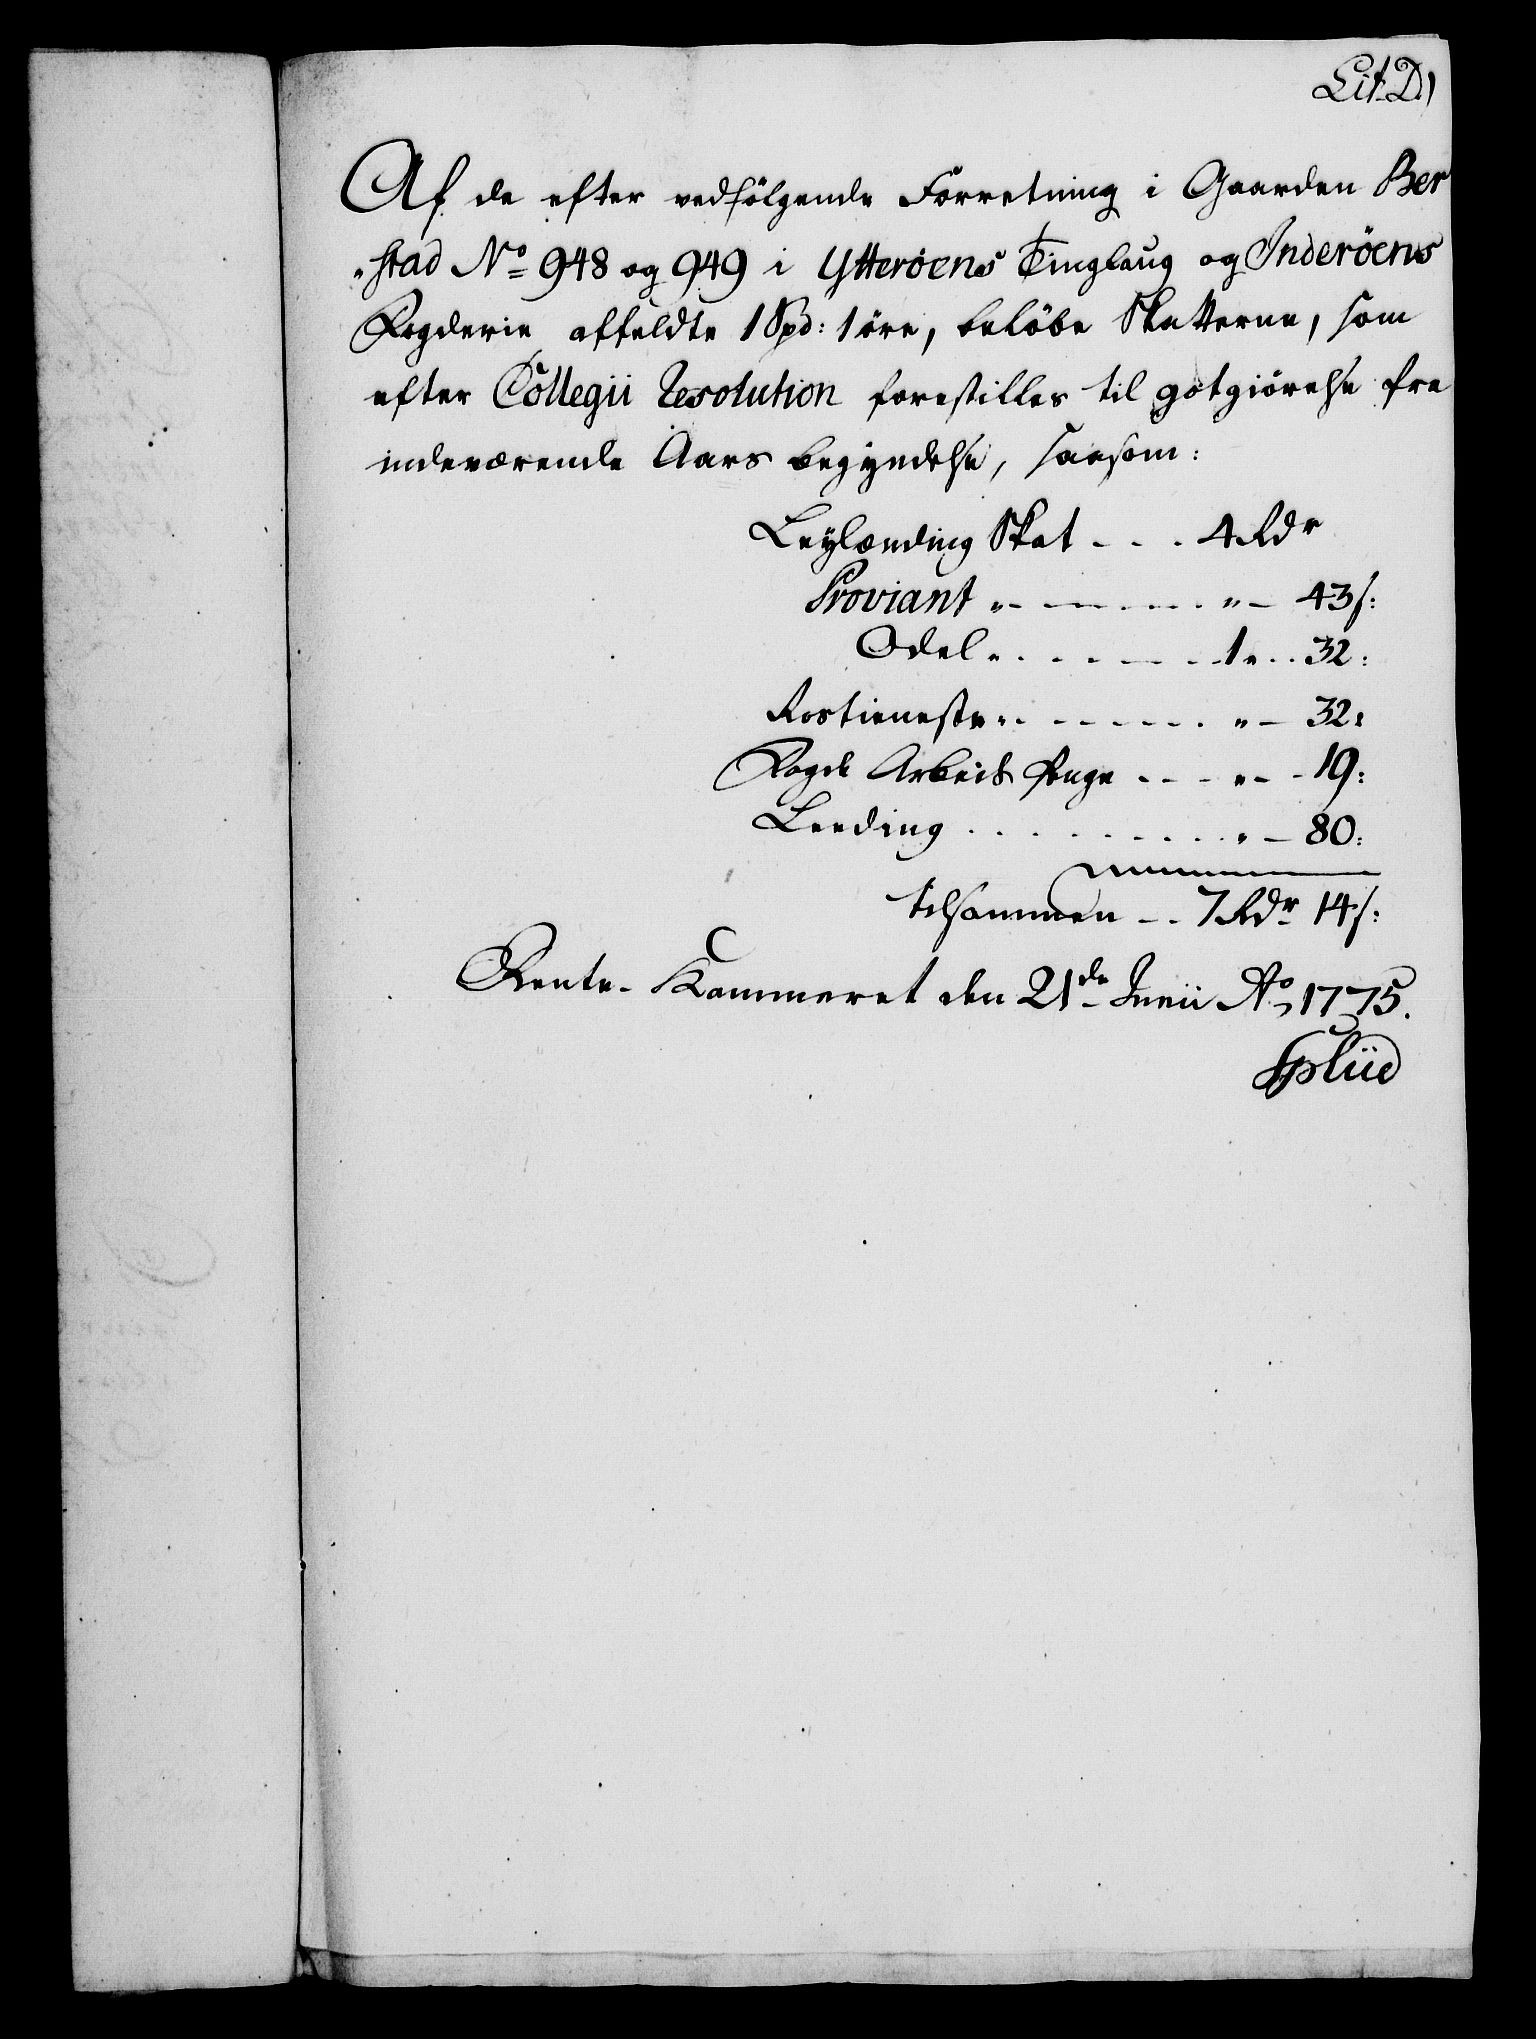 Lit. D.
Af de efter vedfølgende Forretning i Gaarden Ber
„stad No 948 og 949 i Ytterøens Tinglaug og Inderöens
Fogderie affeldte 1 Spd: 1 öre, beløbe Skatterne, som
efter Collegii Resolution forestilles til gotgiörelse fra
indeværende Aars begyndelse, saasom:
Leylænding Skat - - . 4 Rdr
Proviant „- - - - - . „ - 43 s:
Odel „ . . - - - . 1 „ . . 32:
Rostieneste „ . - - - - . „ - 32:
Fogde Arbeids Penge - - - „ - - 19:
Leeding . . . . . . . „ - 80:
tilsammen - - 7 Rdr 14 s:
Rente-Kammeret den 21de Junii Ao 1775.
Splüd